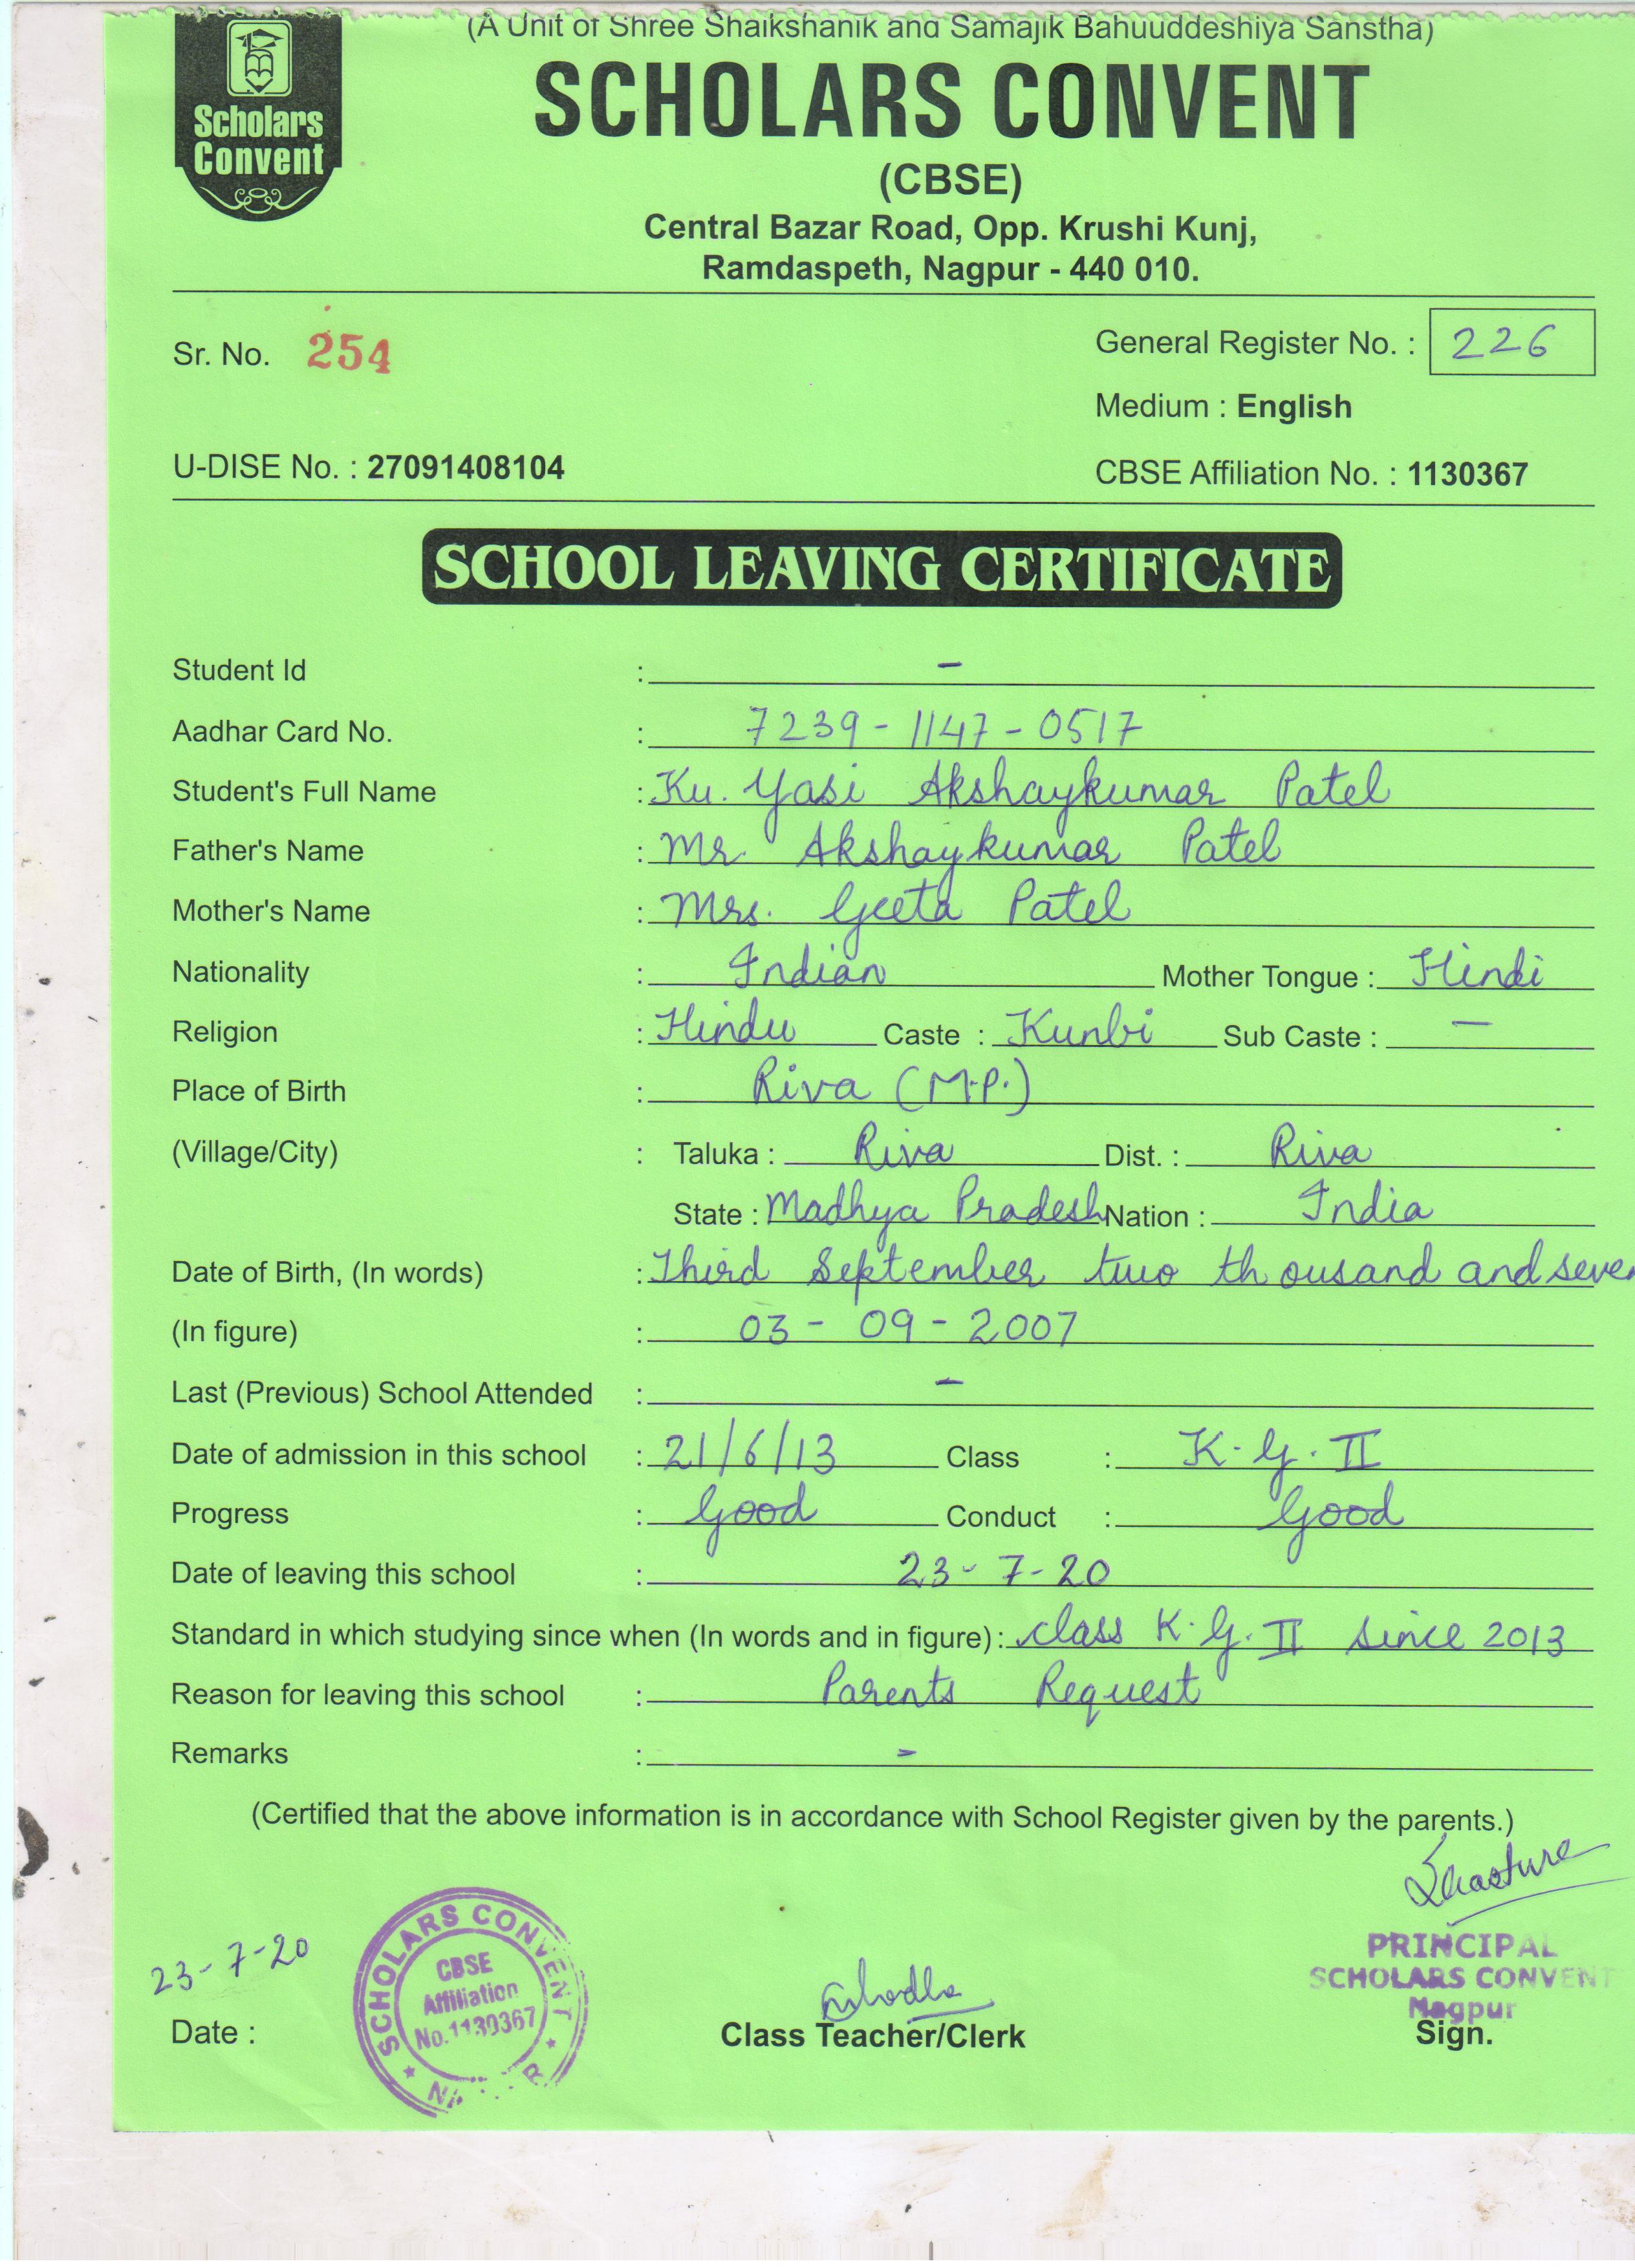 (A Unit of Shree Shaikshanik and Samajik Bahuuddeshiya Sanstha)
Scholars
Convent
SCHOLARS CONVENT
(CBSE)
Central Bazar Road, Opp. Krushi Kunj,
Ramdaspeth, Nagpur - 440 010.
Sr. No. 254
General Register No. : 226
Medium : English
U-DISE No. : 27091408104
CBSE Affiliation No. : 1130367
SCHOOL LEAVING CERTIFICATE
Student Id : -
Aadhar Card No. : 7239-1147-0517
Student's Full Name : Ku. Yasi Akshaykumar Patel
Father's Name : Mr. Akshaykumar Patel
Mother's Name : Mrs. Geeta Patel
Nationality : Indian Mother Tongue : Hindi
Religion : Hindu Caste : Kunbi Sub Caste : -
Place of Birth : Riva (M.P.)
(Village/City) : Taluka : Riva Dist. : Riva
State : Madhya Pradesh Nation : India
Date of Birth, (In words) : Third September two thousand and seven
(In figure) : 03-09-2007
Last (Previous) School Attended : -
Date of admission in this school : 21/6/13 Class : K.G.II
Progress : Good Conduct : Good
Date of leaving this school : 23-7-20
Standard in which studying since when (In words and in figure) : class K.G.II since 2013
Reason for leaving this school : Parents Request
Remarks : -
(Certified that the above information is in accordance with School Register given by the parents.)
23-7-20
Date :
SCHOLARS CONVENT
CBSE
Affiliation
No.1130367
Class Teacher/Clerk
PRINCIPAL
SCHOLARS CONVENT
Nagpur
Sign.